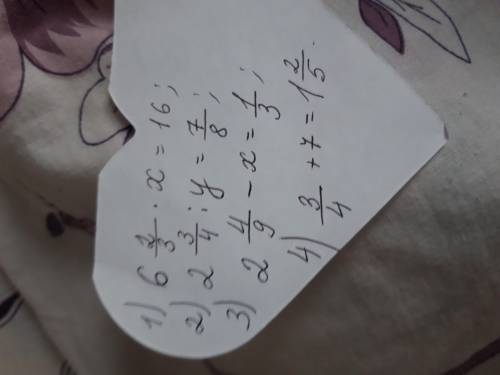 1) 6 2/3 · x = 16;
2) 2 3/4 : y = 7/8;
3) 2 4/9 - x = 1/3;
4) 3/4 + 7 = 1 2/5.